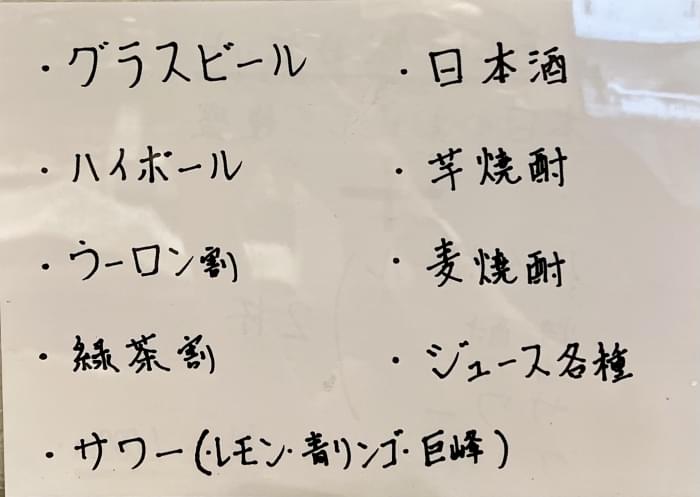 ・グラスビール
・ハイボール
・ウーロン割
・緑茶割
・サワー(・レモン・青リンゴ・巨峰)
・日本酒
・芋焼酎
・麦焼酎
・ジュース各種